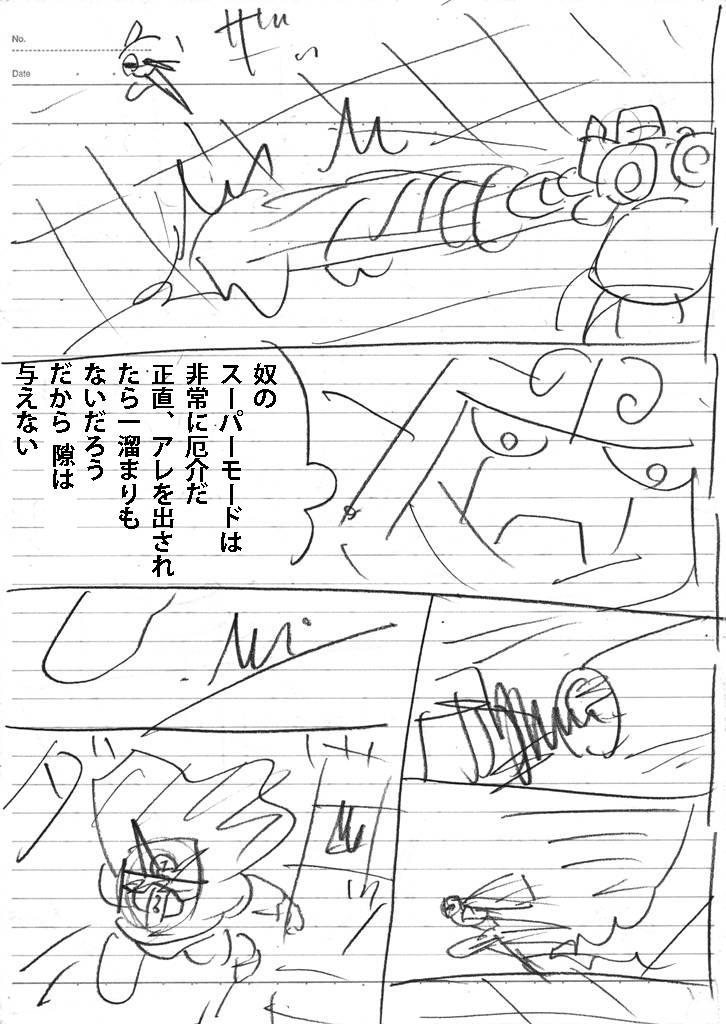 No.
Date
奴の
スーパーモードは
非常に厄介だ
正直、アレを出され
たら一溜まりも
ないだろう
だから 隙は
与えない